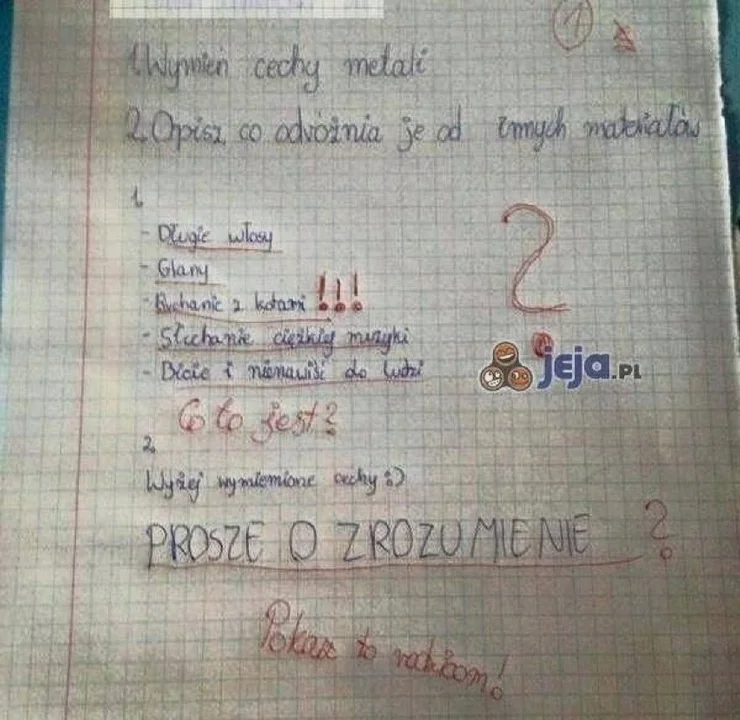 1
1. Wymień cechy metali
2. Opisz co odróżnia je od innych materiałów
1.
- Długie włosy
- Glany
- Ruchanie z kotami !!!
- Słuchanie ciężkiej muzyki
- Bicie i nienawiść do ludzi
?
jeja.PL
Co to jest?
2.
Wyżej wymienione cechy :)
PROSZE O ZROZUMIENIE ?
Pokaż to rodzicom!